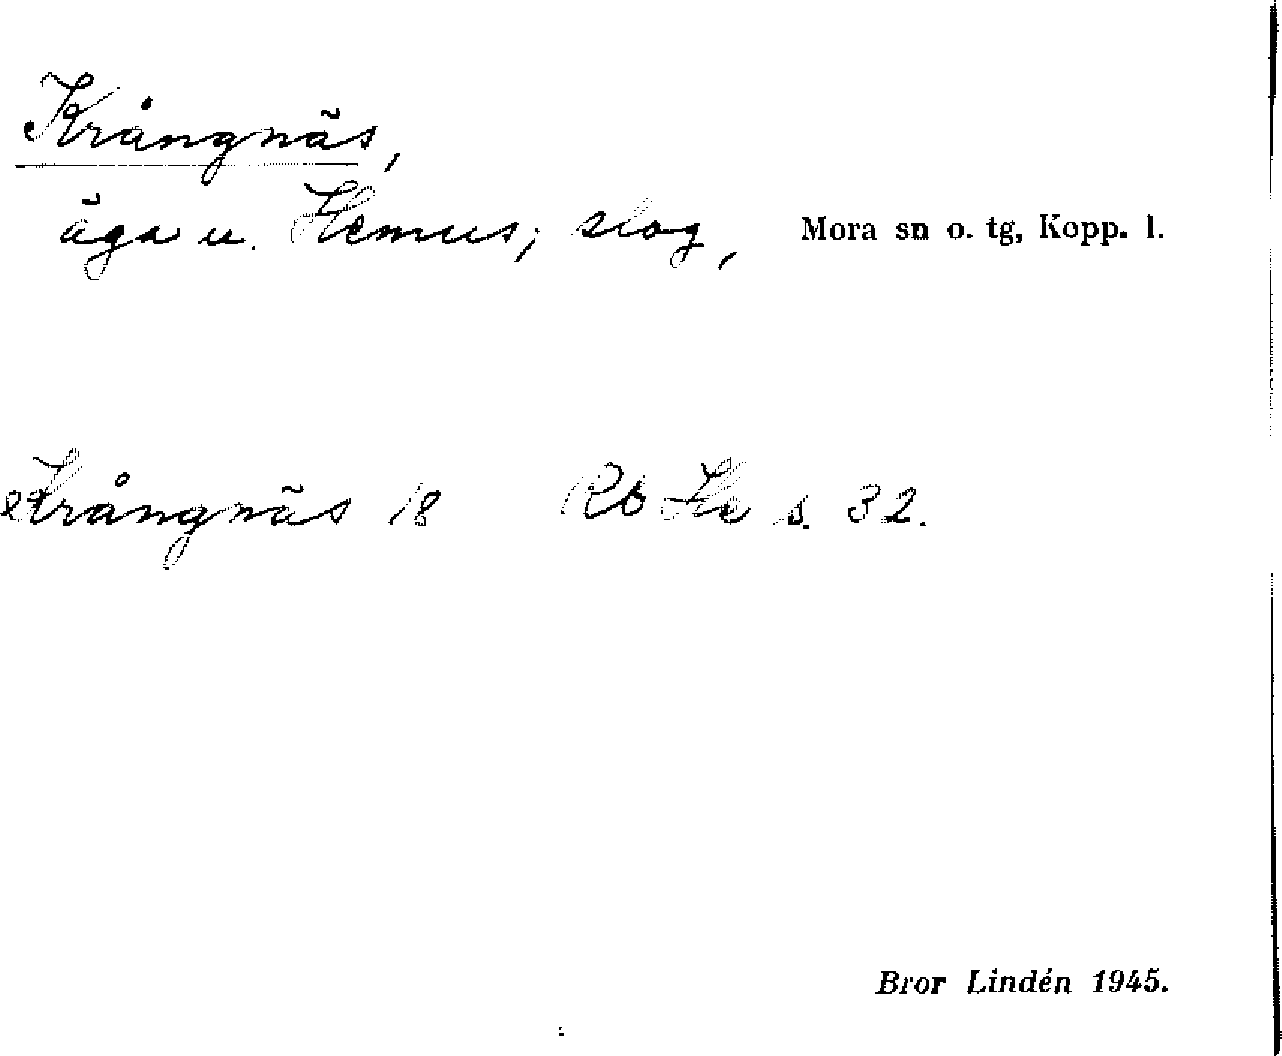 Krångnäs,
äga u. Hemus; slog, Mora sn o. tg, Kopp. l.
Krångnäs 18 Rb He s. 32.
Bror Lindén 1945.